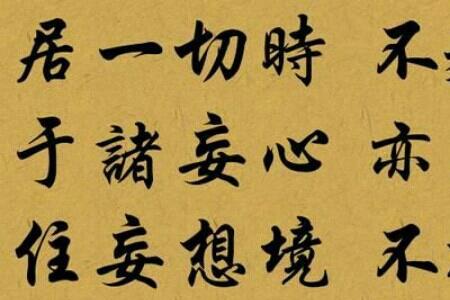 居一切時 不
于諸妄心 亦
住妄想境 不